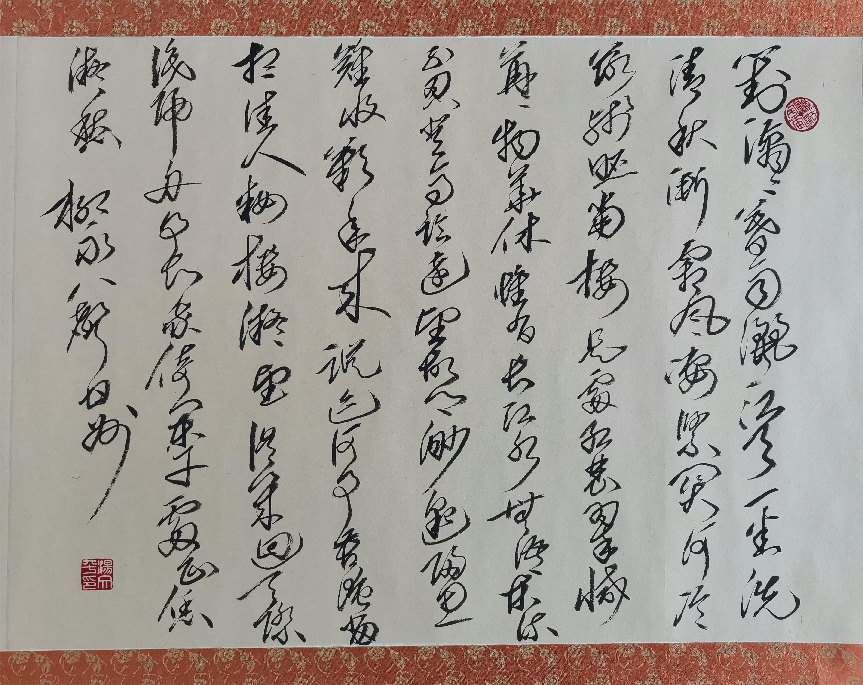 對瀟〻暮雨灑江天一番洗
清秋漸霜風凄緊関河冷
落殘照當樓是處紅衰翠減
苒〻物華休惟有長江水無語東流
不忍登高臨遠望故鄉渺邈歸思
難收歎年來蹤迹何事苦淹留
想佳人妝樓凝望誤幾回天際
識歸舟爭知我倚闌干處正恁
凝愁 柳永八聲甘州